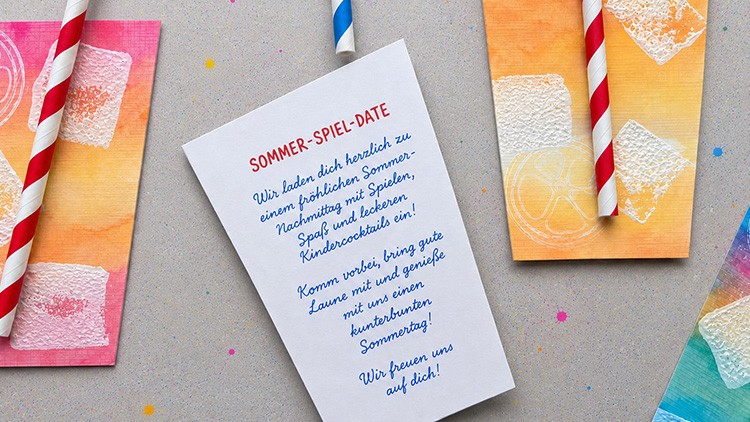 SOMMER-SPIEL-DATE
Wir laden dich herzlich zu
einem fröhlichen Sommer-
Nachmittag mit Spielen,
Spaß und leckeren
Kindercocktails ein!
Komm vorbei, bring gute
Laune mit und genieße
mit uns einen
kunterbunten
Sommertag!
Wir freuen uns
auf dich!